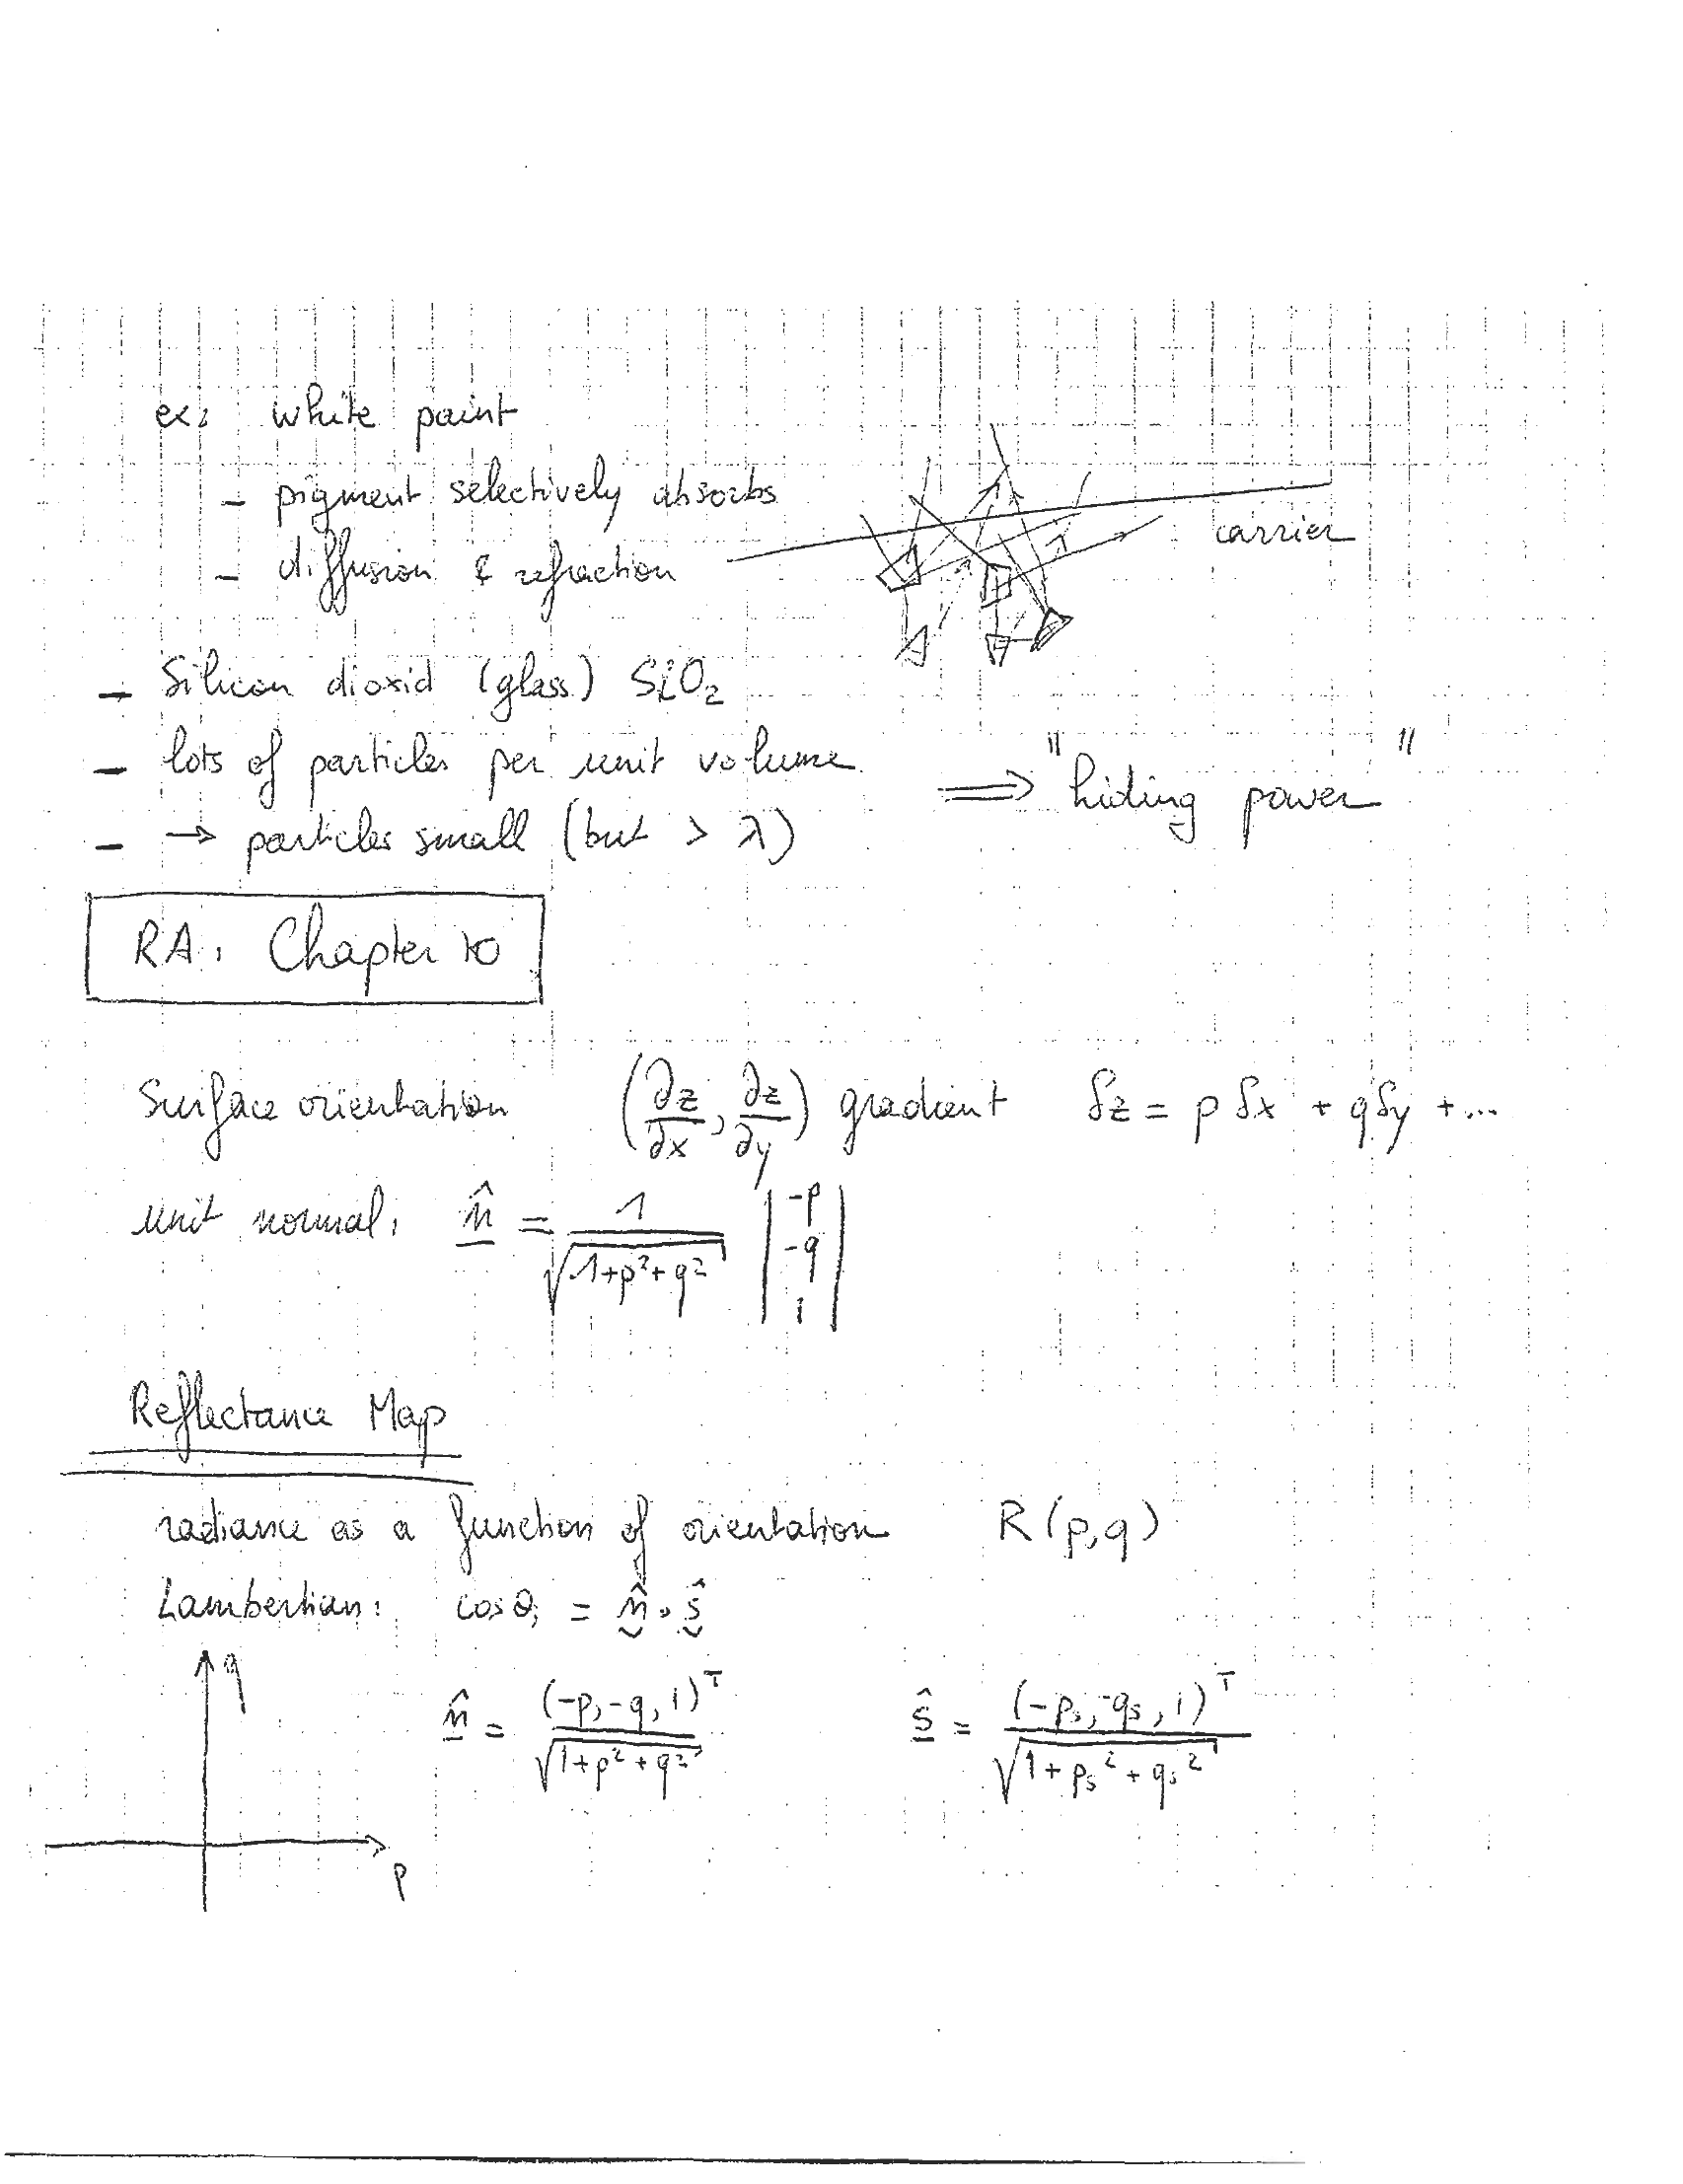 ex: white paint
- pigment selectively absorbs
- diffusion & refraction
carrier
- Silicon dioxid (glass) SiO₂
- lots of particles per unit volume
⇒ "hiding power"
- → particles small (but > λ)
RA: Chapter 10
Surface orientation (∂z/∂x, ∂z/∂y) gradient δz = p δx + q δy + ...
unit normal: n̂ = 1/√(1+p²+q²) |-p -q 1|
Reflectance Map
radiance as a function of orientation R(p,q)
Lambertian: cos θᵢ = n̂ · ŝ
q
n̂ = (-p, -q, 1)ᵀ/√(1+p²+q²) ŝ = (-pₛ, -qₛ, 1)ᵀ/√(1+pₛ²+qₛ²)
p